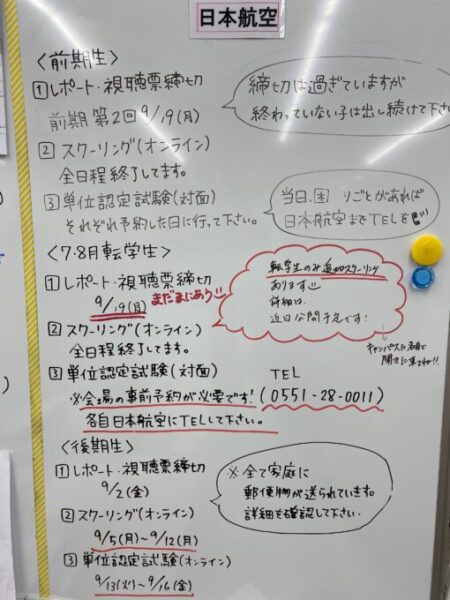 日本航空
〈前期生〉
1 レポート・視聴票締切
前期 第2回 9/19(月)
締切は過ぎていますが
終わっていない子は出し続けて下さい
2 スクーリング(オンライン)
全日程終了してます。
3 単位認定試験(対面)
それぞれ予約した日に行って下さい。
当日、困りごとがあれば
日本航空までTELを
〈7・8月転学生〉
1 レポート・視聴票締切
9/19(月) まだまにあう
2 スクーリング(オンライン)
全日程終了してます。
転学生のみ追加スクーリング
あります
詳細は、
近日公開予定です!
キャンパスに
聞きに来てね!!
3 単位認定試験(対面)
TEL
※会場の事前予約が必要です!(0551-28-0011)
各自日本航空にTELして下さい。
〈後期生〉
1 レポート・視聴票締切
9/2(金)
2 スクーリング(オンライン)
9/5(月)~9/12(月)
3 単位認定試験(オンライン)
9/13(火)~9/16(金)
※全て家庭に
郵便物が送られています。
詳細を確認して下さい。